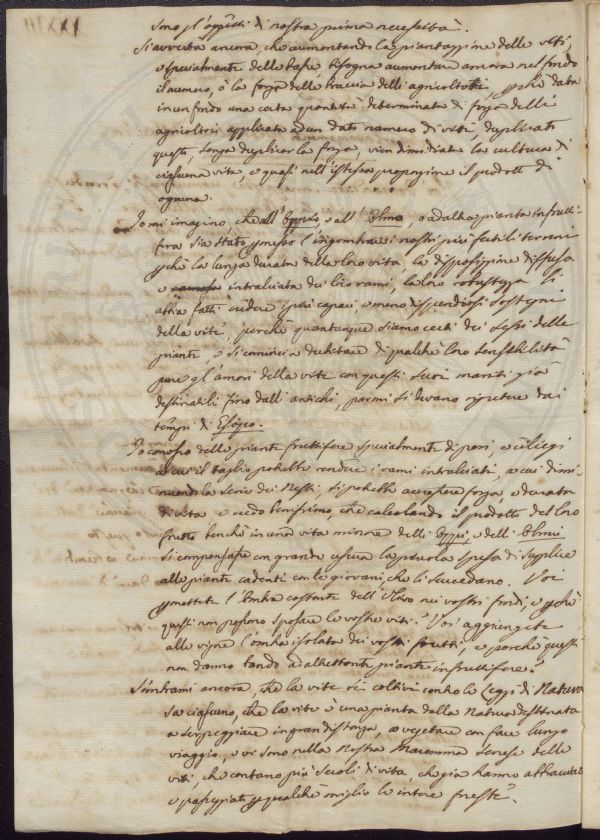 sono gl'oggetti di nostra prima necessità.
Si avverta ancora, che aumentando la piantazione delle viti,
e specialmente delle basse bisogna aumentare ancora nel fondo
il numero, ò la forza delle braccia delli agricoltori, perchè data
in un fondo una certa quantità determinata di forza delli
agricoltori applicata ad un dato numero di viti, duplicate
queste, senza duplicar la forza, vien dimidiata la cultura di
ciascuna vite, e quasi nell'istessa proporzione il prodotto di
ognuna.
Io mi imagino, che all'Oppio, e all'Olmo, o ad altra pianta infrutti-
fera sia stato permesso l'ingombrare i nostri più fertili terreni
perchè la lunga durata della loro vita, la disposizione diffusa
e intralciata dei loro rami, la loro robustezza li
abbia fatti credere i più capaci, e meno dispendiosi sostegni
della vite, perchè quantunque siamo certi dei sessi delle
piante, e si cominci a dubitare di qualche loro sensibilità
pure gl'amori della vite con questi suoi mariti già
destinatili fino dall'antichi, parmi si devano riputare dai
tempi di Esopo.
Io conosco delle piante fruttifere specialmente di peri, e ciliegi
a cui il taglio potrebbe rendere i rami intralciati, a cui dimi-
nuendo la serie dei frutti, si potrebbe accrescere forza, e durata
di vita, e credo benissimo, che calcolando il prodotto del loro
frutto benchè in una vita minore delli Oppi, e delli Olmi
si compensasse con grande usura la piccola spesa di supplire
alle piante cadenti con le giovani, che li succedano. Voi
permettete l'ombra costante dell'Ulivo nei vostri fondi, e perchè
questi non possono sposare le vostre viti? Voi aggiungete
alle vigne l'ombra isolata dei vostri frutti, e perchè questi
non danno bando ad altrettante piante infruttifere?
Sembrami ancora, che la vite si coltivi contro le Leggi di Natura
Sa ciascuno, che la vite è una pianta dalla Natura destinata
a serpeggiare in gran distanza, a vegetare con fare lungo
viaggio, e vi sono nella nostra Maremma Senese delle
viti, che contano più secoli di vita, che già hanno abbracciate
e passeggiate per qualche miglio le intere foreste.